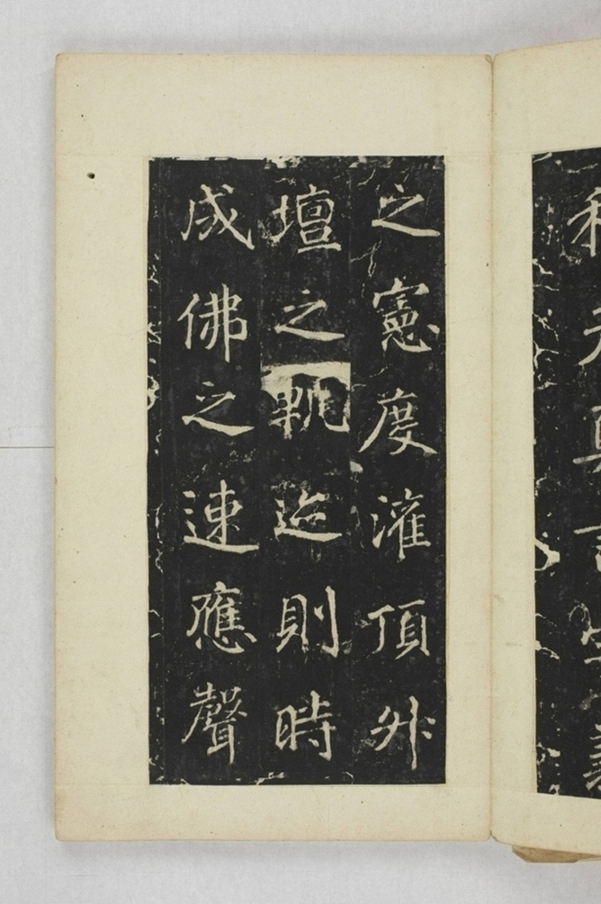 之憲度灌頂升
壇之軌迹則時
成佛之速應聲